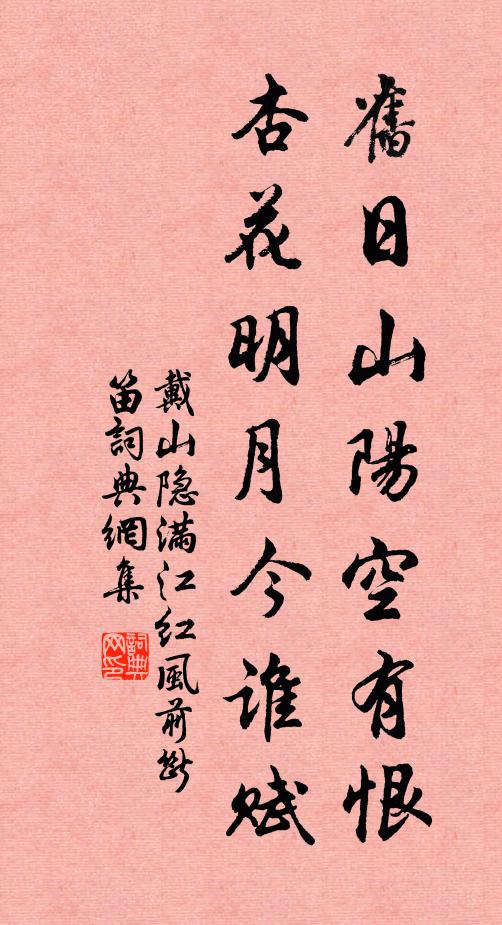 舊日山陽空有恨
杏花明月今誰賦
戴山隐满江红風前斷
笛詞典網集
詞典
网印